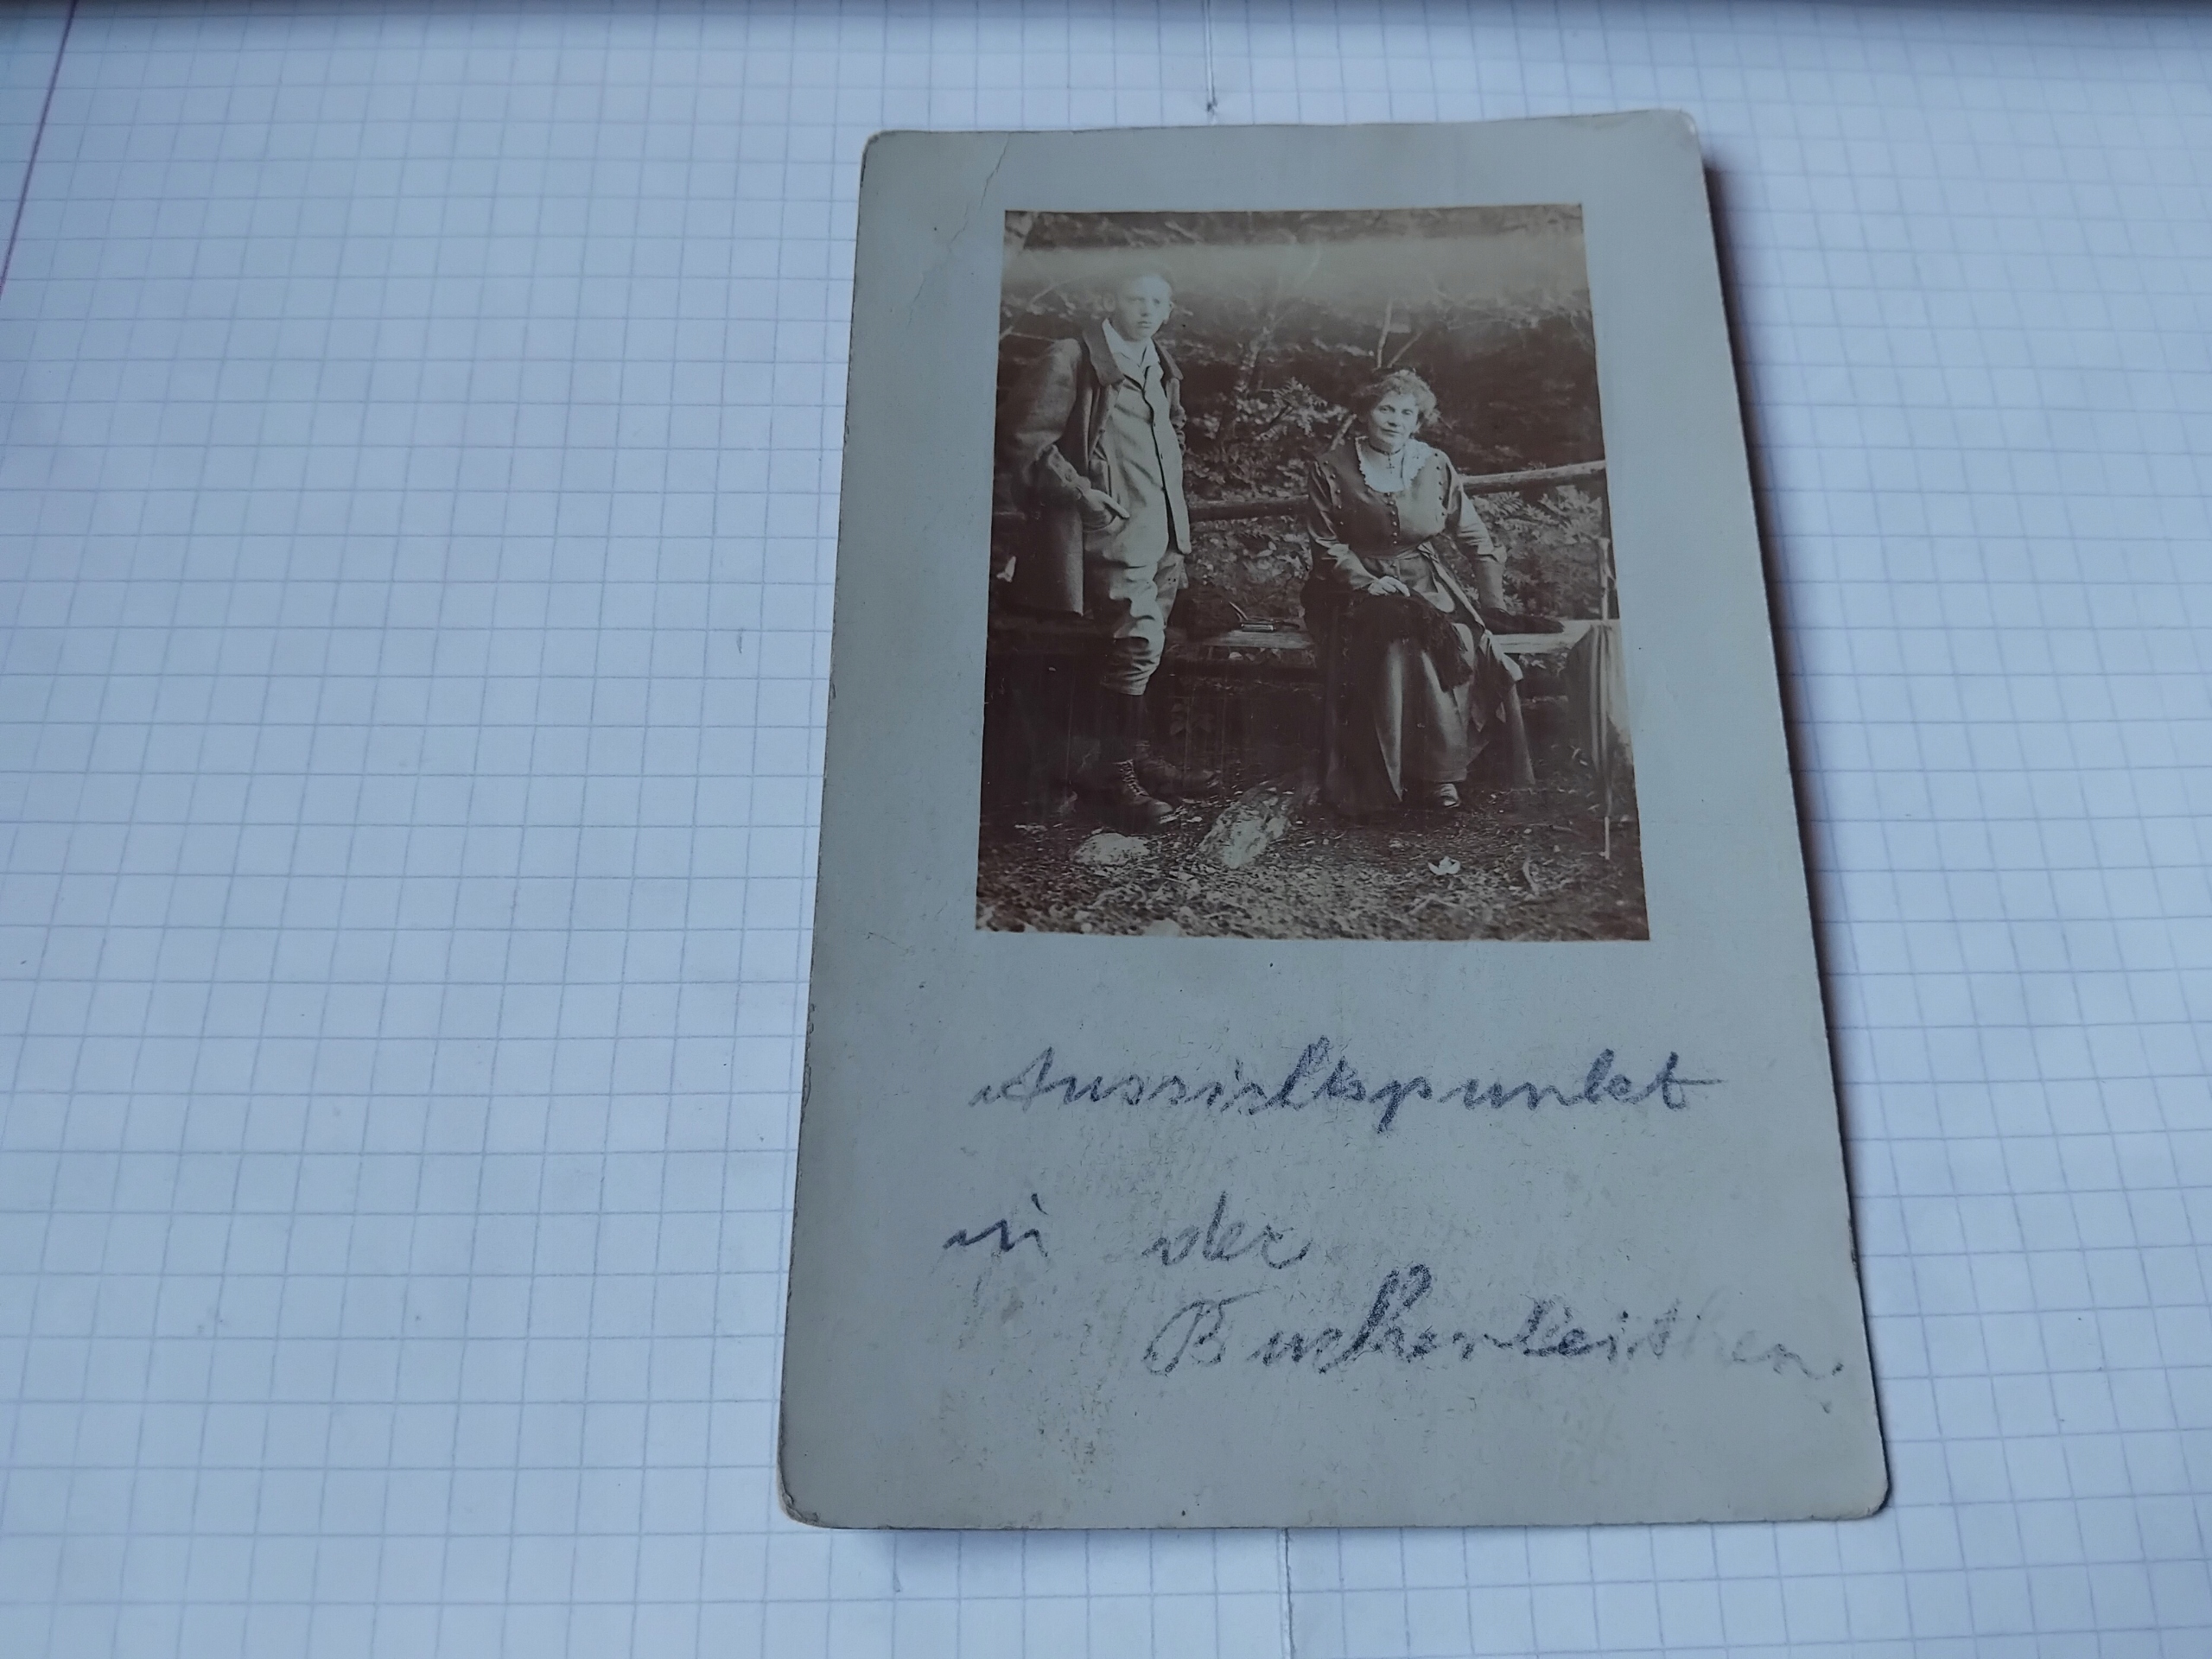 Aussichtspunkt
in der
Buchenleithen.